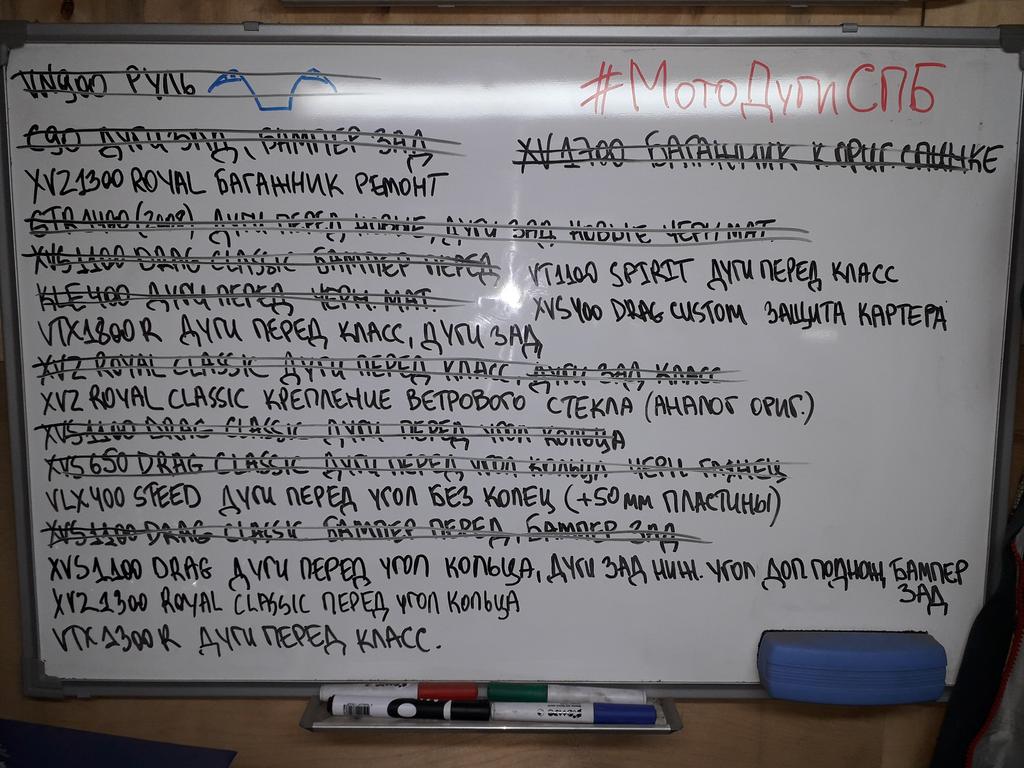 VN900 РУЛЬ
#МотоДугиСПБ
C90 ДУГИ ЗАД, БАМПЕР ЗАД
XV1700 БАГАЖНИК К ОРИГ. СПИНКЕ
XVZ1300 ROYAL БАГАЖНИК РЕМОНТ
GTR1400 (2008) ДУГИ ПЕРЕД НОВЫЕ, ДУГИ ЗАД НОВЫЕ ЧЕРН. МАТ.
XVS1100 DRAG CLASSIC БАМПЕР ПЕРЕД
VT1100 SPIRIT ДУГИ ПЕРЕД КЛАСС
KLE400 ДУГИ ПЕРЕД ЧЕРН. МАТ.
XVS400 DRAG CUSTOM ЗАЩИТА КАРТЕРА
VTX1800R ДУГИ ПЕРЕД КЛАСС, ДУГИ ЗАД
XVZ ROYAL CLASSIC ДУГИ ПЕРЕД КЛАСС, ДУГИ ЗАД КЛАСС
XVZ ROYAL CLASSIC КРЕПЛЕНИЕ ВЕТРОВОГО СТЕКЛА (АНАЛОГ ОРИГ.)
XVS1100 DRAG CLASSIC ДУГИ ПЕРЕД УГОЛ КОЛЬЦА
XVS650 DRAG CLASSIC ДУГИ ПЕРЕД УГОЛ КОЛЬЦА ЧЕРН ГЛЯНЕЦ
VLX400 STEED ДУГИ ПЕРЕД УГОЛ БЕЗ КОЛЕЦ (+50мм ПЛАСТИНЫ)
XVS1100 DRAG CLASSIC БАМПЕР ПЕРЕД, БАМПЕР ЗАД
XVS1100 DRAG ДУГИ ПЕРЕД УГОЛ КОЛЬЦА, ДУГИ ЗАД НИЖ. УГОЛ ДОП. ПОДНОЖ, БАМПЕР
ЗАД
XVZ1300 ROYAL CLASSIC ПЕРЕД УГОЛ КОЛЬЦА
VTX1300R ДУГИ ПЕРЕД КЛАСС.